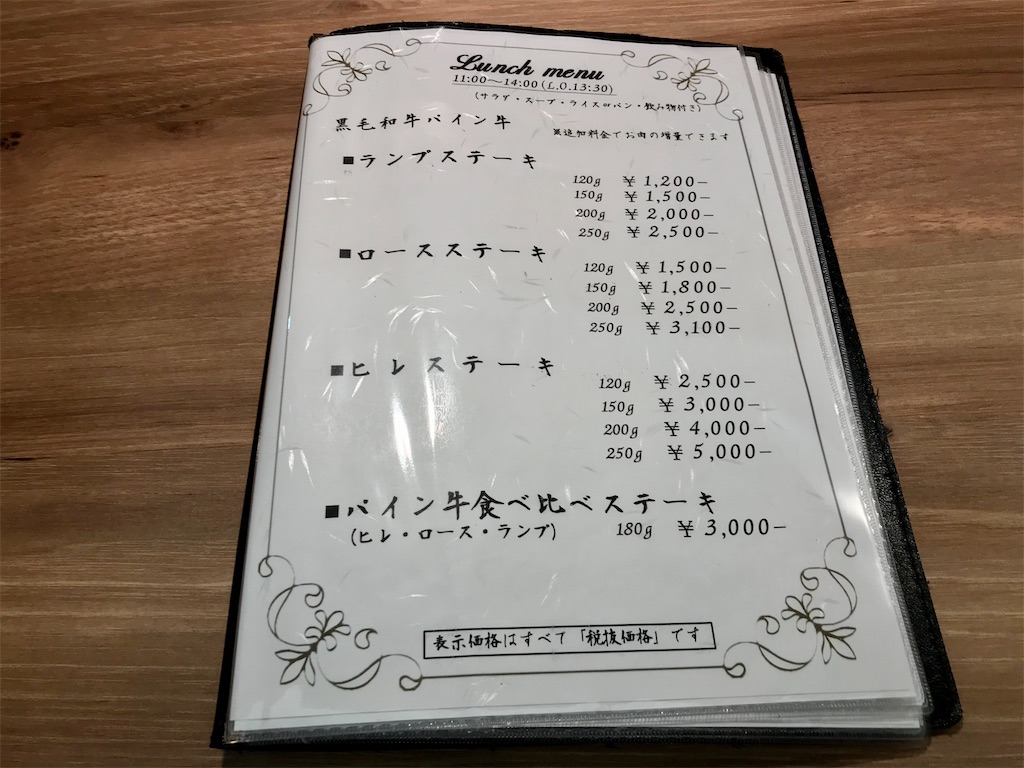 Lunch menu
11:00～14:00(L.O.13:30)
(サラダ・スープ・ライスorパン・飲み物付き)
黒毛和牛パイン牛
※追加料金でお肉の増量できます
■ランプステーキ
120g ￥1,200−
150g ￥1,500−
200g ￥2,000−
250g ￥2,500−
■ロースステーキ
120g ￥1,500−
150g ￥1,800−
200g ￥2,500−
250g ￥3,100−
■ヒレステーキ
120g ￥2,500−
150g ￥3,000−
200g ￥4,000−
250g ￥5,000−
■パイン牛食べ比べステーキ
(ヒレ・ロース・ランプ) 180g ￥3,000−
表示価格はすべて「税抜価格」です